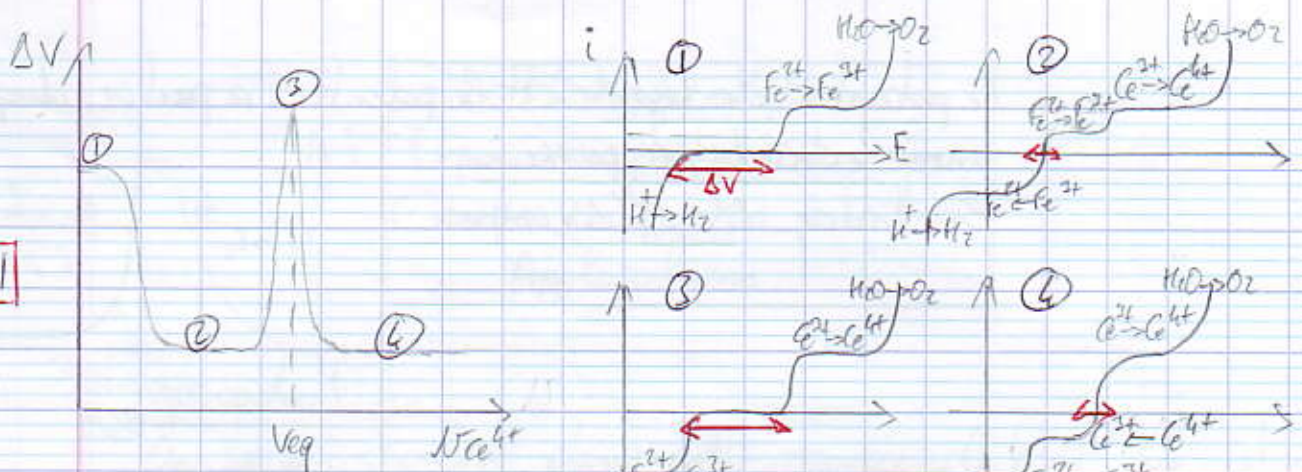 ΔV
①
②
③
④
Veq
𝒱Ce⁴⁺
1
i
①
H₂O→O₂
Fe²⁺→Fe³⁺
E
ΔV
H⁺→H₂
②
H₂O→O₂
Ce³⁺→Ce⁴⁺
Fe²⁺→Fe³⁺
Fe²⁺←Fe³⁺
H⁺→H₂
③
H₂O→O₂
Ce³⁺→Ce⁴⁺
④
H₂O→O₂
Ce³⁺→Ce⁴⁺
Ce³⁺←Ce⁴⁺